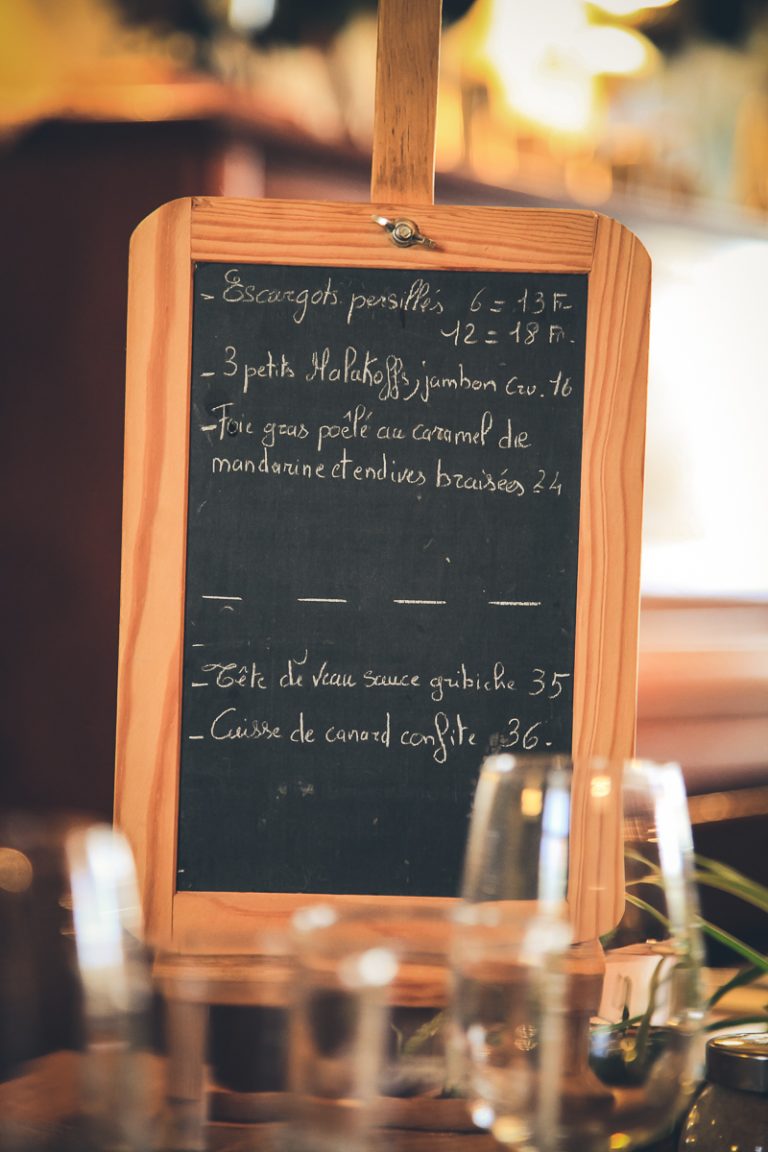 - Escargots persillés 6 = 13 Fr.
12 = 18 Fr.
- 3 petits Malakoffs, jambon cru. 16
- Foie gras poêlé au caramel de
mandarine et endives braisées 24
- Tête de veau sauce gribiche 35
- Cuisse de canard confite 36.-